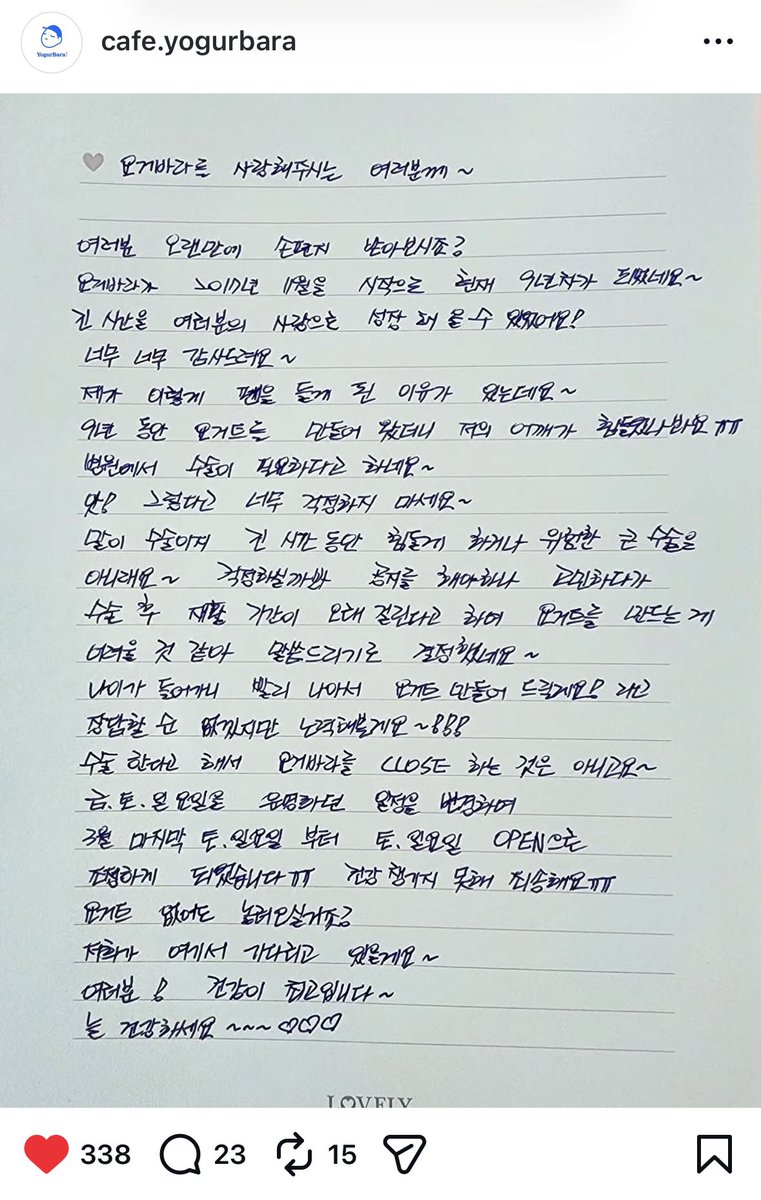 YogurBara!
cafe.yogurbara
요거바라를 사랑해주시는 여러분께~
여러분 오랜만에 손편지 받아보시죠?
요거바라가 2017년 11월을 시작으로 현재 9년차가 되었네요~
긴 시간을 여러분의 사랑으로 성장해 올 수 있었어요!
너무 너무 감사드려요~
제가 이렇게 펜을 들게 된 이유가 있는데요~
9년 동안 요거트를 만들어 왔더니 저의 어깨가 힘들었나봐요ㅠㅠ
병원에서 수술이 필요하다고 하네요~
앗! 그렇다고 너무 걱정하지 마세요~
말이 수술이져 긴 시간 동안 힘들게 하거나 위험한 큰 수술은
아니래요~ 걱정하실까봐 공지를 해야하나 고민하다가
수술 후 재활 기간이 오래 걸린다고 하여 요거트를 만드는 게
어려울 것 같아 말씀드리기로 결정했네요~
나이가 들어가니 빨리 나아서 요거트 만들어 드릴게요! 라고
장담할 순 없겠지만 노력해볼게요~!!!
수술 한다고 해서 요거바라를 CLOSE 하는 것은 아니고요~
금.토.일요일을 운영하던 일정을 변경하여
3월 마지막 토.일요일 부터 토.일요일 OPEN으로
조정하게 되었습니다ㅠㅠ 건강 챙기지 못해 죄송해요ㅠㅠ
요거트 없어도 놀러오실거죠?
저희가 여기서 기다리고 있을게요~
여러분! 건강이 최고입니다~
늘 건강하세요~~~♡♡♡
LOVELY
338 23 15